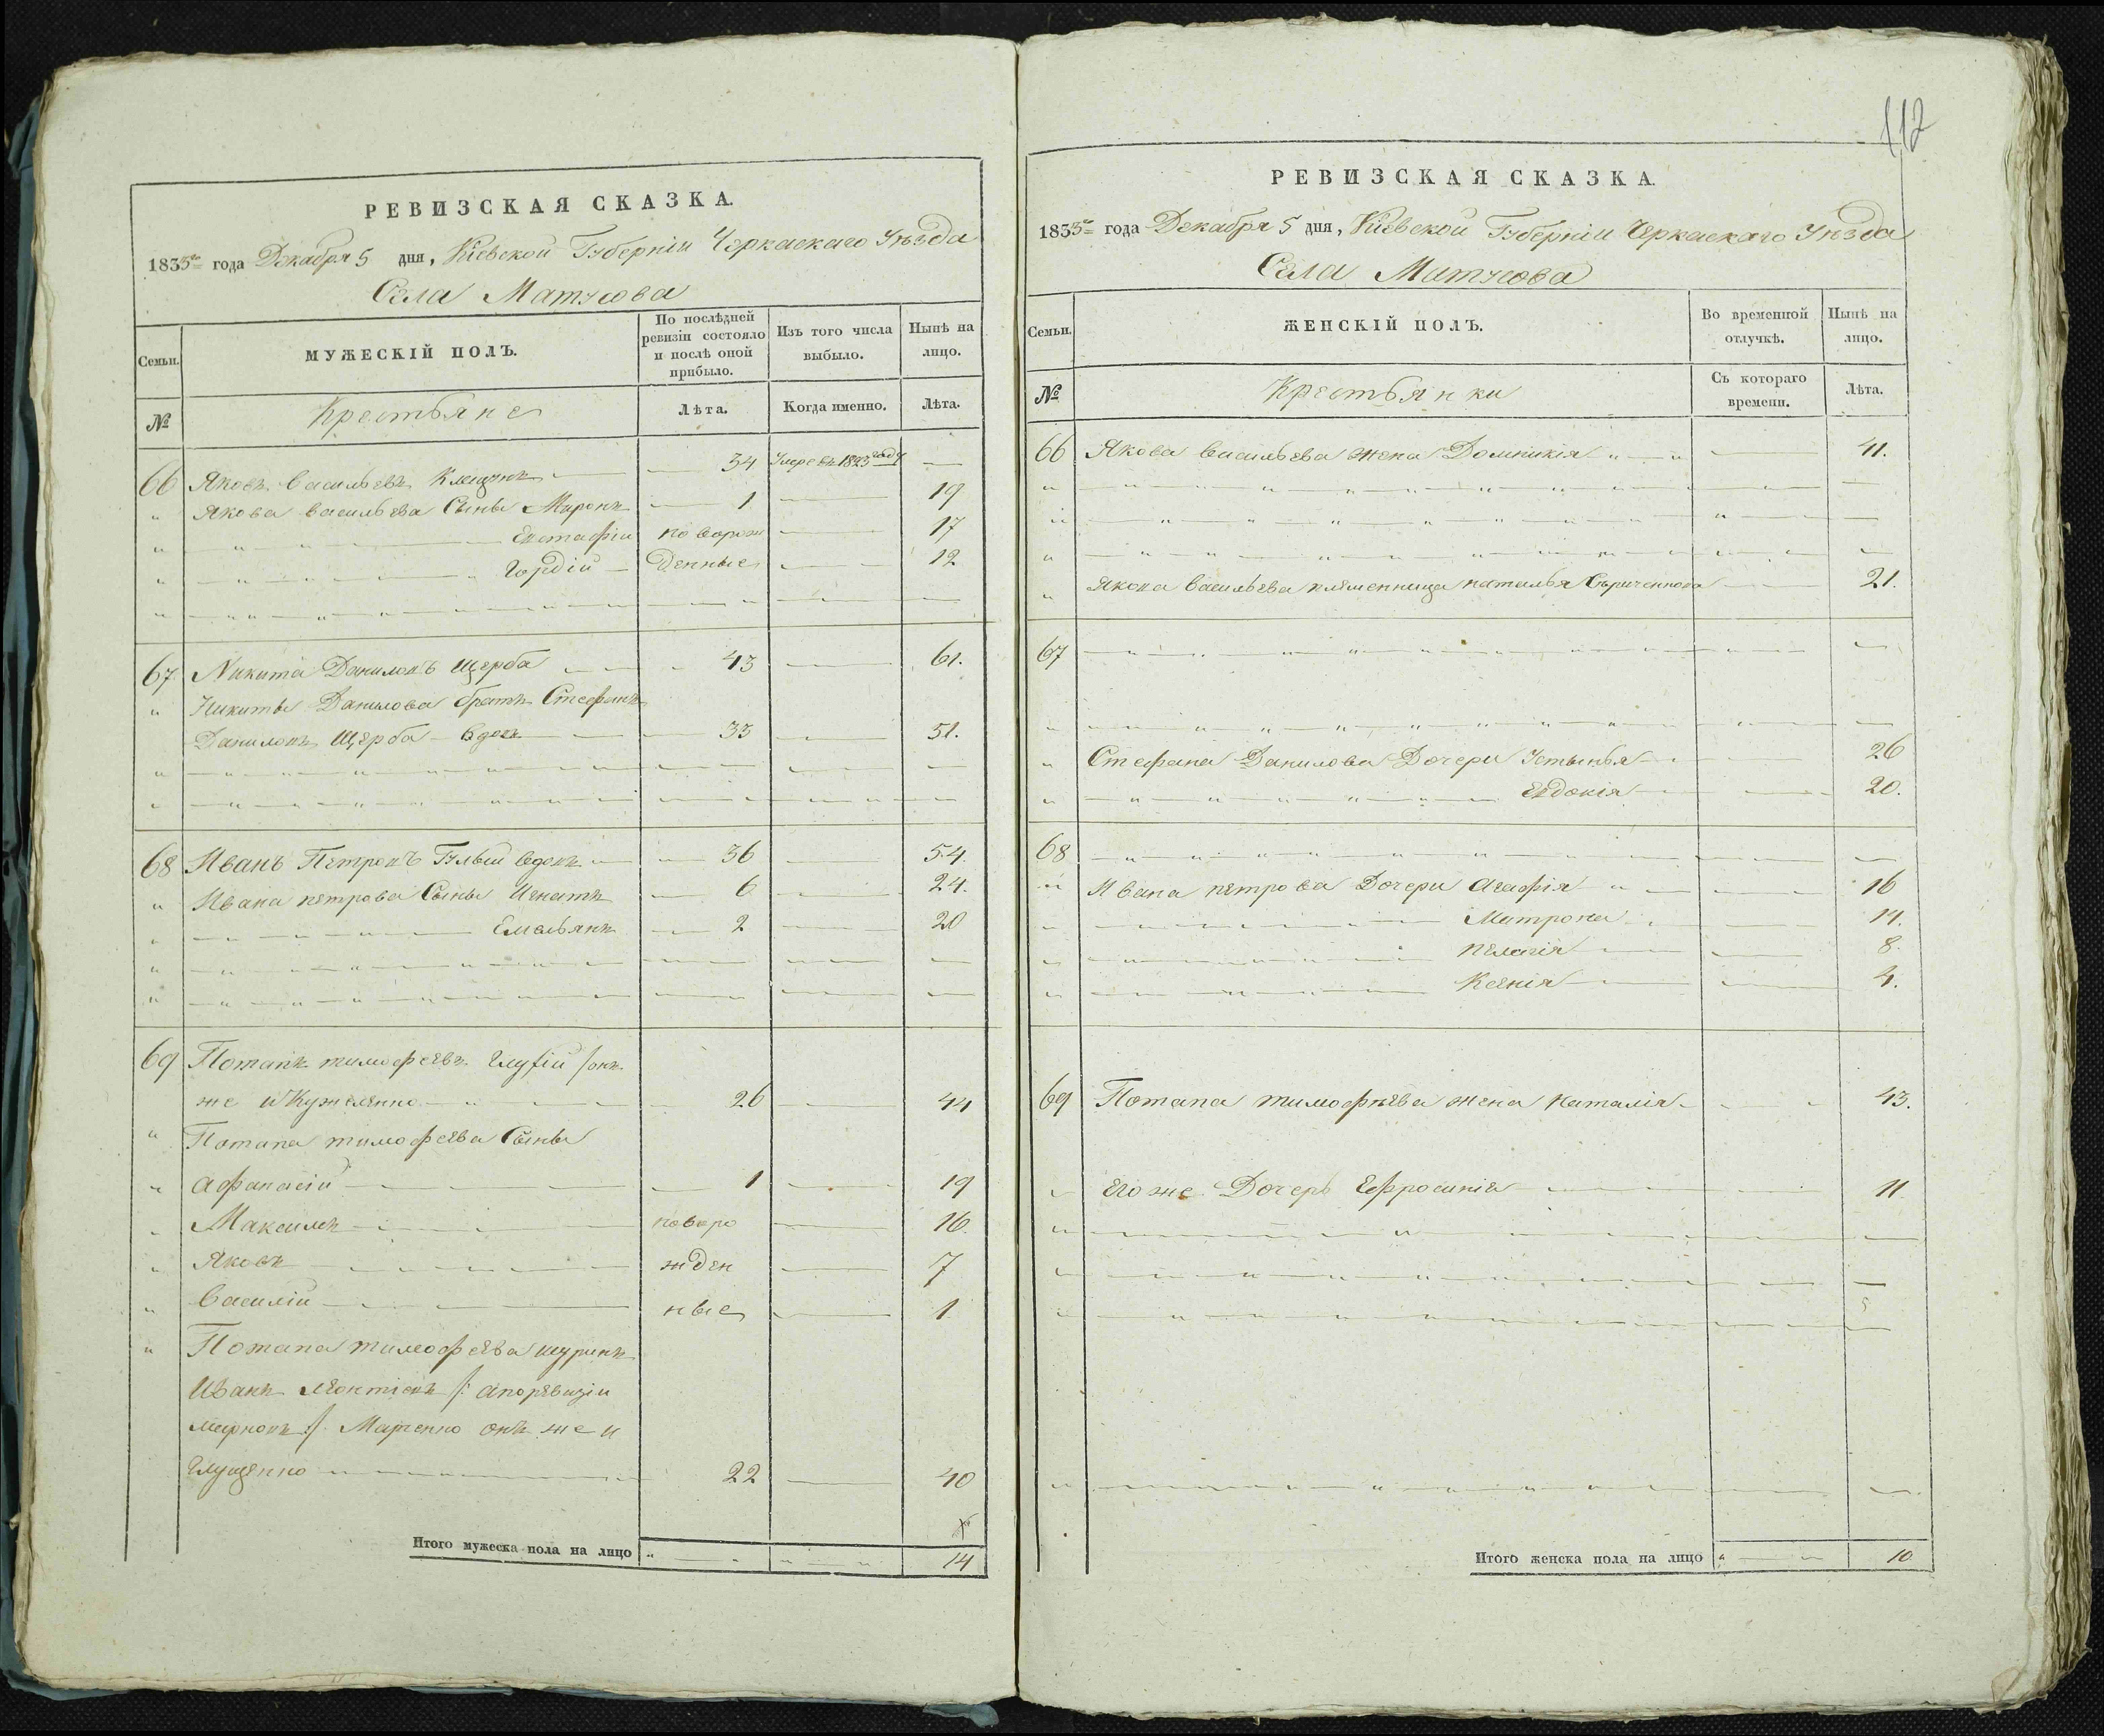 РЕВИЗСКАЯ СКАЗКА.
1835го года Декабря 5 дня, Кіевской Губерніи Черкаскаго Уѣзда
Села Матусова
Семьи.
МУЖЕСКІЙ ПОЛЪ.
По послѣдней ревизіи состояло и послѣ оной прибыло.
Изъ того числа выбыло.
Нынѣ на лицо.
№
Крестьяне
Лѣта.
Когда именно.
Лѣта.
66 Яковъ Васильевъ 34 Умре въ 1823 году —
" Якова Васильева Сыны Миронъ 1 — 19
" Евстафіи новорож — 17
" Гордіи денные — 12
67 Никита Даниловъ Щерба 43 — 61.
" Никиты Данилова братъ Стефанъ
Даниловъ Щерба вдовъ 33 — 51.
68 Иванъ Петровъ вдовъ 36 — 54.
" Ивана петрова Сыны Игнатъ 6 — 24.
" Емельянъ 2 — 20
69 Потапъ тимофеевъ онъ
же и Кужеленко 26 — 44
" Потапа тимофеева Сыны
" Афанасіи 1 — 19
" Максимъ новоро — 16
" Яковъ жден — 7
" Василіи ные — 1
" Потапа тимофеева шуринъ
Иванъ леонтіевъ /: а по ревизіи
:/ Марченко онъ же и
Глущенко 22 — 40
Итого мужеска пола на лицо " — " " — " 14
112
РЕВИЗСКАЯ СКАЗКА.
1835го года Декабря 5 дня, Кіевской Губерніи Черкаскаго Уѣзда
Села Матусова
Семьи.
ЖЕНСКІЙ ПОЛЪ.
Во временной отлучкѣ.
Нынѣ на лицо.
№
Крестьянки
Съ котораго времени.
Лѣта.
66 Якова Васильева жена Домникія 41.
" Якова Васильева племенница наталья 21.
67
" Стефана Данилова Дочери Устинья 26
" Евдокія 20.
68
" Ивана петрова Дочери Агафія 16
" Матрона 11.
" пелагія 8.
" Ксенія 4.
69 Потапа тимофѣева жена наталія 43.
" Его же Дочерь Ефросинія 11
Итого женска пола на лицо " — " 10